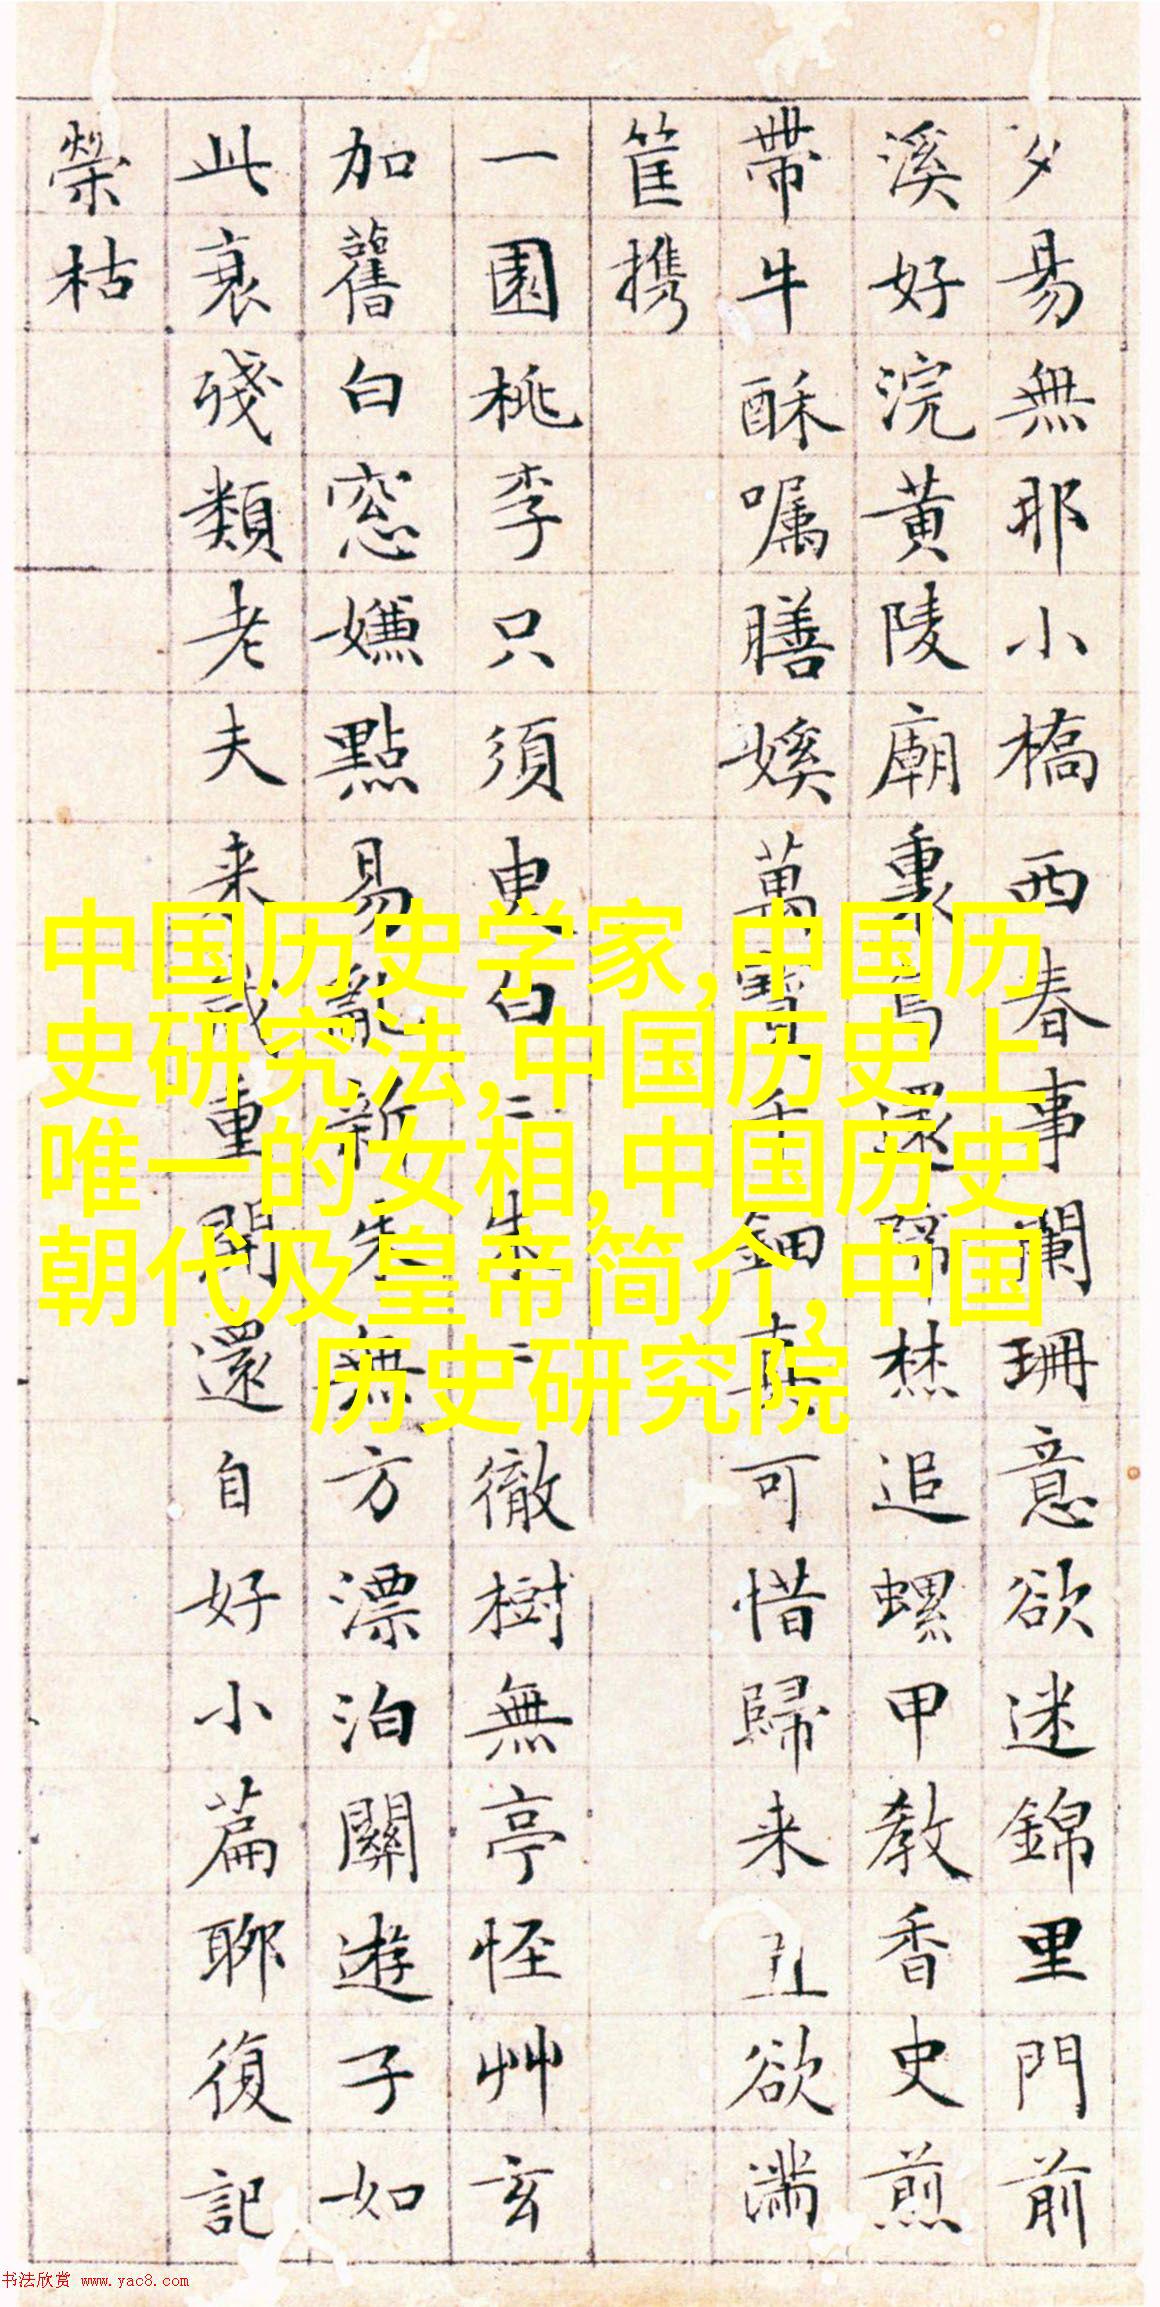 夕易無耶小橋西春事闌珊意欲迷錦里門前
溪好浣黃陵廟裏還隔楚追螺甲教香史煎
帶牛酥嘱膳媄萬寶千鈿真可惜歸来丑欲满
筐携
一園桃李只須更白二朱二徹樹無亭怪艸玄
加舊白窓嫌點易亂新朱無方漂泊關遊子如
此衰殘類老夫来歲重開還自好小篇聊復記
榮枯
中国历史学家,中国历
史研究法,中国历史上
唯一的女相,中国历史
朝代及皇帝简介,中国
历史研究院
书法欣赏 www.yac8.com